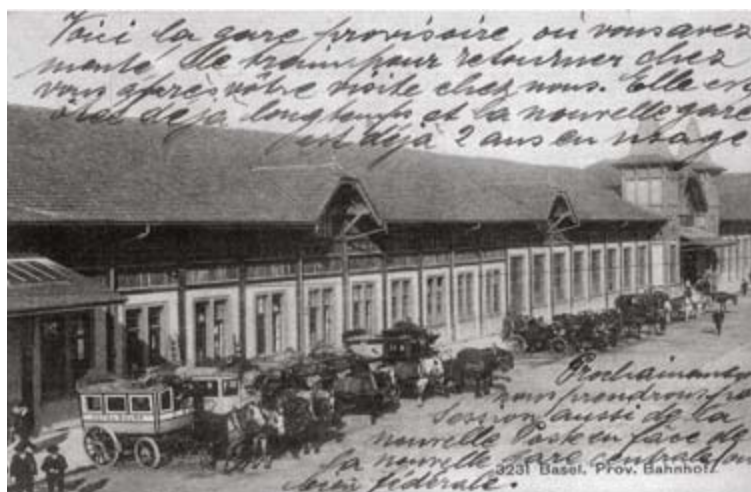 Voici la gare provisoire, où vous avez
monté le train pour retourner chez
vous après vôtre visite chez nous. Elle es
ôtée déjà longtemps et la nouvelle gare
est déjà 2 ans en usage
Prochainement
nous prendrons po
session aussi de la
nouvelle Poste en face de
la nouvelle gare centrale ou
bien fédérale.
3231 Basel. Prov. Bahnhof.